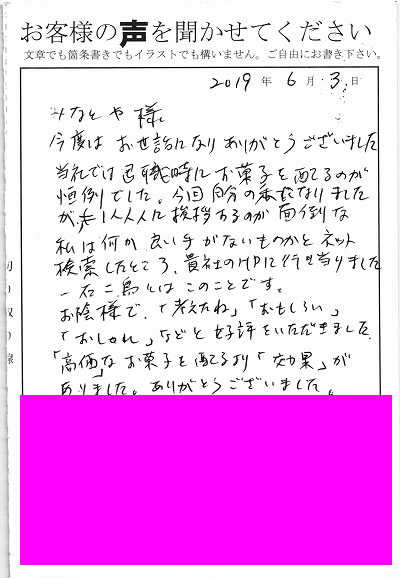 お客様の声を聞かせてください
文章でも箇条書きでもイラストでも構いません。ご自由にお書き下さい。
2019 年 6 月 3 日
みなとや 様
今度は お世話になり ありがとうございました
当社では 退職時に お菓子を 配るのが
恒例でした。今回自分の番となりました
が、1人1人に 挨拶するのが 面倒な
私は何か 良い手がないものかと ネット
検索したところ、貴社のHPに行き当りました
一石二鳥とは このことです。
お陰様で、「考えたね」「おもしろい」
「おしゃれ」などと 好評をいただきました
「高価」な お菓子を配るより「効果」が
ありました。ありがとうございました。